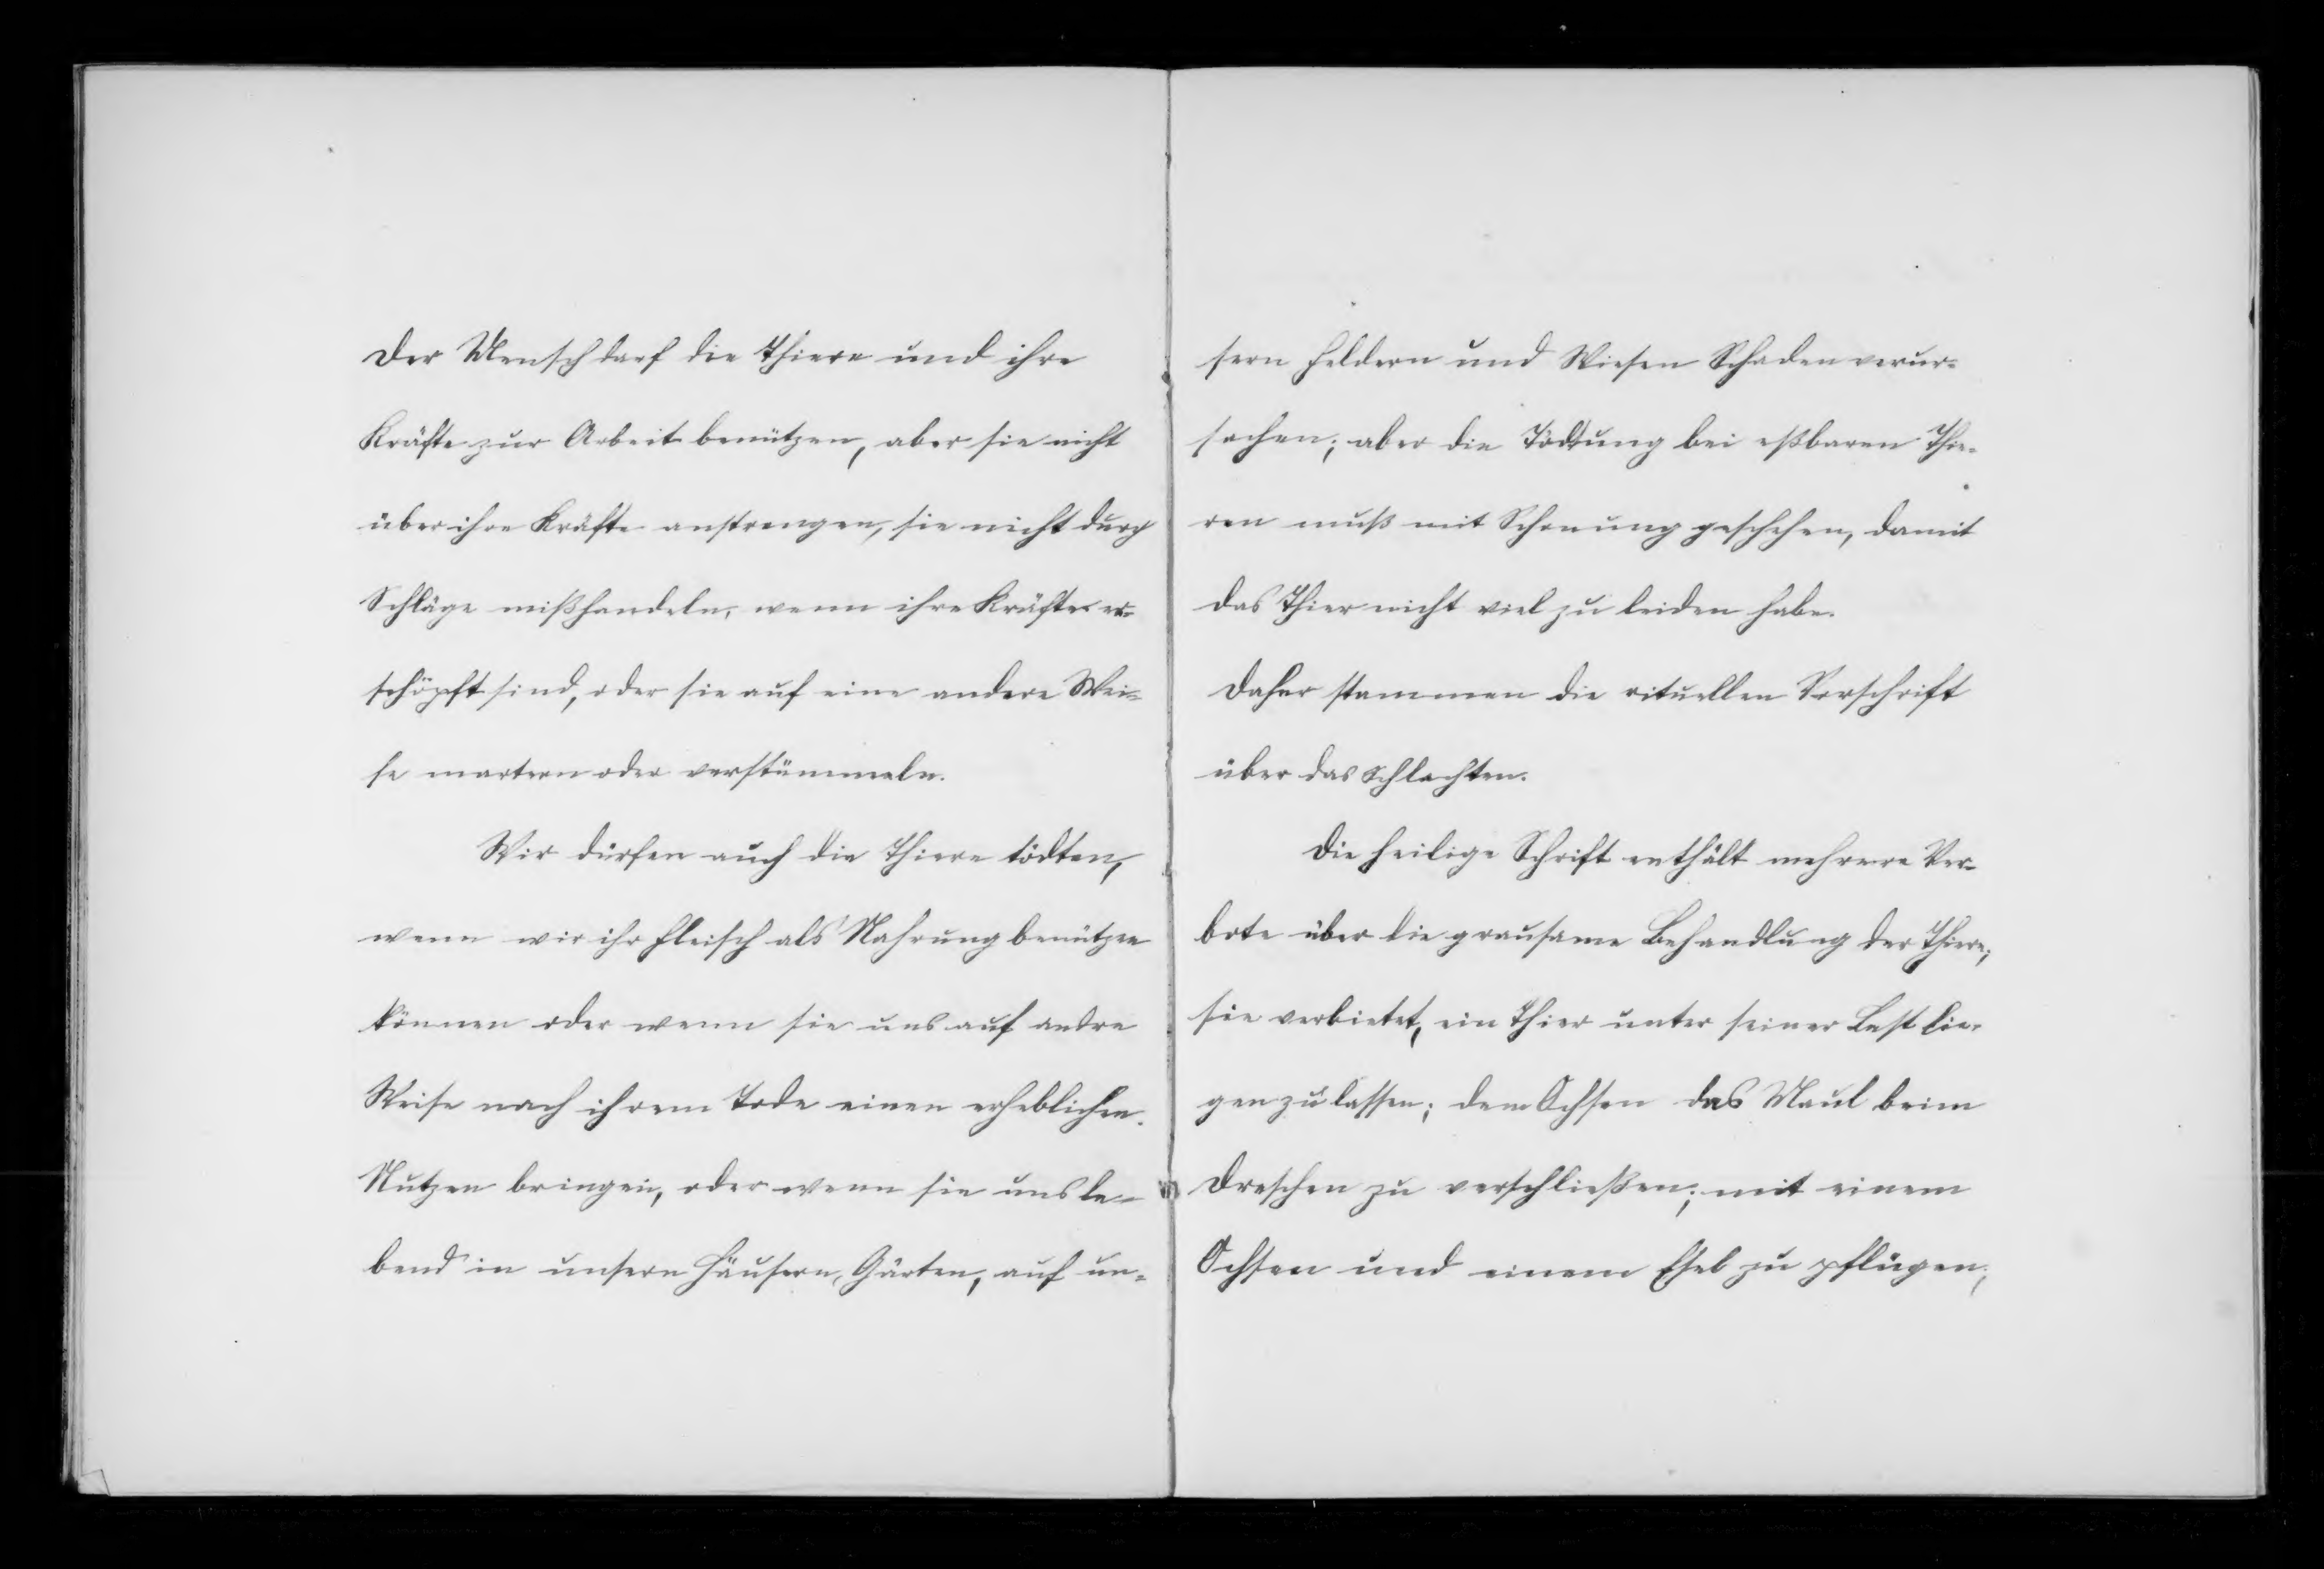 Der Mensch darf die Thiere und ihre
Kräfte zur Arbeit benützen, aber sie nicht
über ihre Kräfte anstrengen, sie nicht durch
Schläge mißhandeln, wenn ihre Kräfte er-
schöpft sind, oder sie auf eine andere Wei-
se martern oder verstümmeln.
Wir dürfen auch die Thiere tödten,
wenn wir ihr Fleisch als Nahrung benützen
können oder wenn sie uns auf andre
Weise nach ihrem Tode einen erheblichen
Nutzen bringen, oder wenn sie uns le-
bend in unsern Häusern, Gärten, auf un-
sern Feldern und Wiesen Schaden verur-
sachen; aber die Tödtung bei eßbaren Thie-
ren muß mit Schonung geschehen, damit
das Thier nicht viel zu leiden habe.
Daher stammen die rituellen Vorschrift
über das Schlachten.
Die heilige Schrift enthält mehrere Ver-
bote über die grausame Behandlung der Thiere;
sie verbietet, ein Thier unter seiner Last lie-
gen zu lassen; dem Ochsen das Maul beim
Dreschen zu verschließen; mit einem
Ochsen und einem Esel zu pflügen;